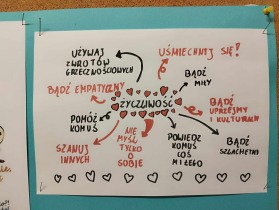 UŻYWAJ
ZWROTÓW
GRZECZNOŚCIOWYCH
UŚMIECHNIJ SIĘ!
BĄDŹ
MIŁY
BĄDŹ EMPATYCZNY
ŻYCZLIWOŚĆ
BĄDŹ
UPRZEJMY
I KULTURALNY
POMÓŻ
KOMUŚ
SZANUJ
INNYCH
NIE
MYŚL
TYLKO
O
SOBIE
POWIEDZ
KOMUŚ
COŚ
MIŁEGO
BĄDŹ
SZLACHETNY